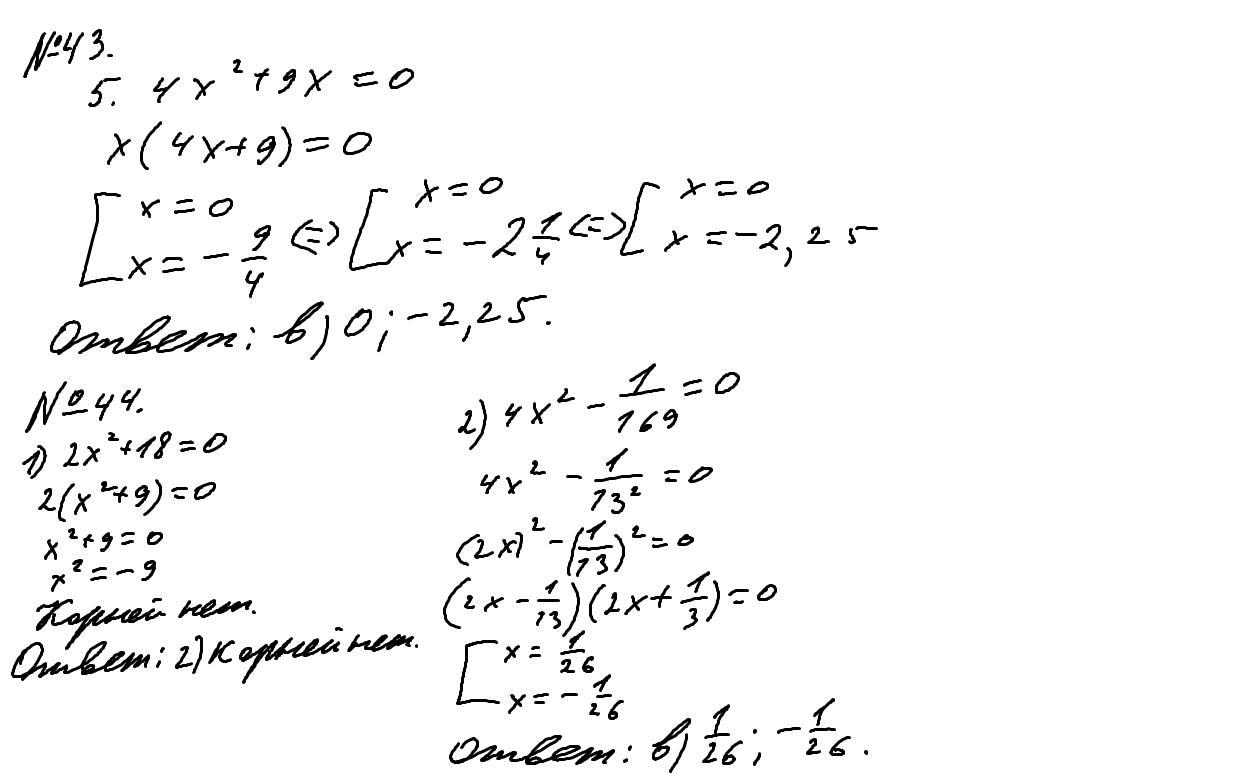 №43.
5. 4x² + 9x = 0
x(4x+9) = 0
[ x = 0 x = -9/4 <=> [ x = 0 x = -2 1/4 <=> [ x = 0 x = -2,25
Ответ: в) 0; -2,25.
№44.
1) 2x²+18=0
2(x²+9)=0
x²+9=0
x²=-9
Корней нет.
Ответ: 2) Корней нет.
2) 4x² - 1/169 = 0
4x² - 1/13² = 0
(2x)² - (1/13)² = 0
(2x - 1/13)(2x + 1/3) = 0
[ x = 1/26 x = -1/26
Ответ: в) 1/26; -1/26.